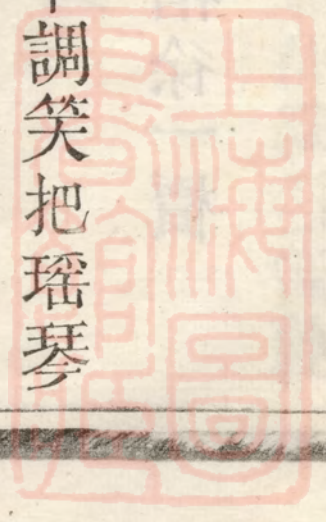 調笑把瑶琴
上海圖
書館藏